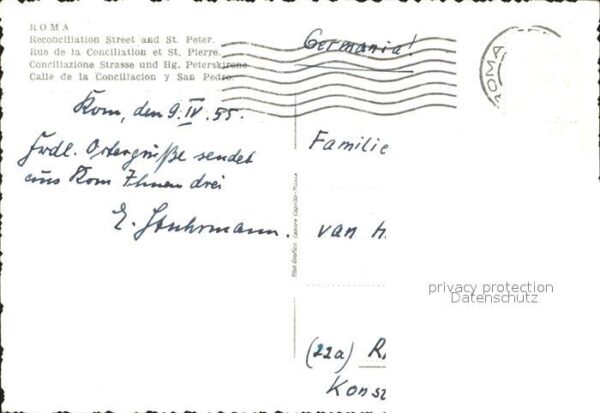 ROMA
Reconciliation Street and St. Peter.
Rue de la Conciliation et St. Pierre.
Conciliazione Strasse und Hg. Peterskirche
Calle de la Conciliacion y San Pedro.
Germania!
ROMA
Rom, den 9. IV. 55.
Frdl. Ostergrüße sendet
aus Rom Ihnen drei
E. Stuhrmann.
Familie
van H
(22a) R
Konst
privacy protection
Datenschutz